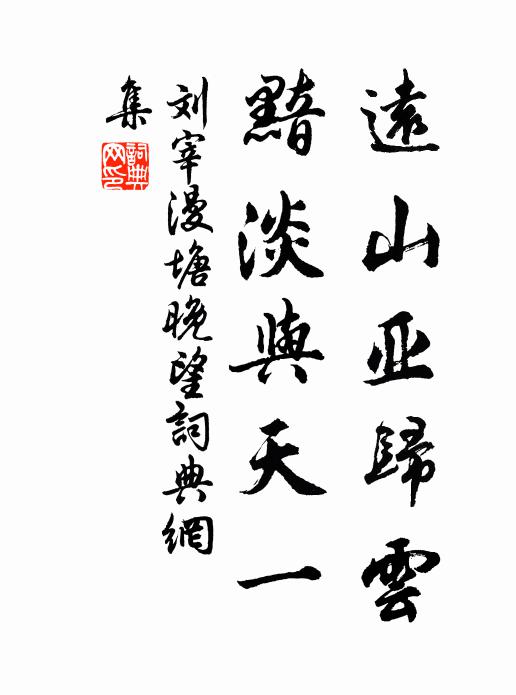 遠山亚歸雲
黯淡與天一
刘宰漫塘晚望詞典網
集
詞典
网印